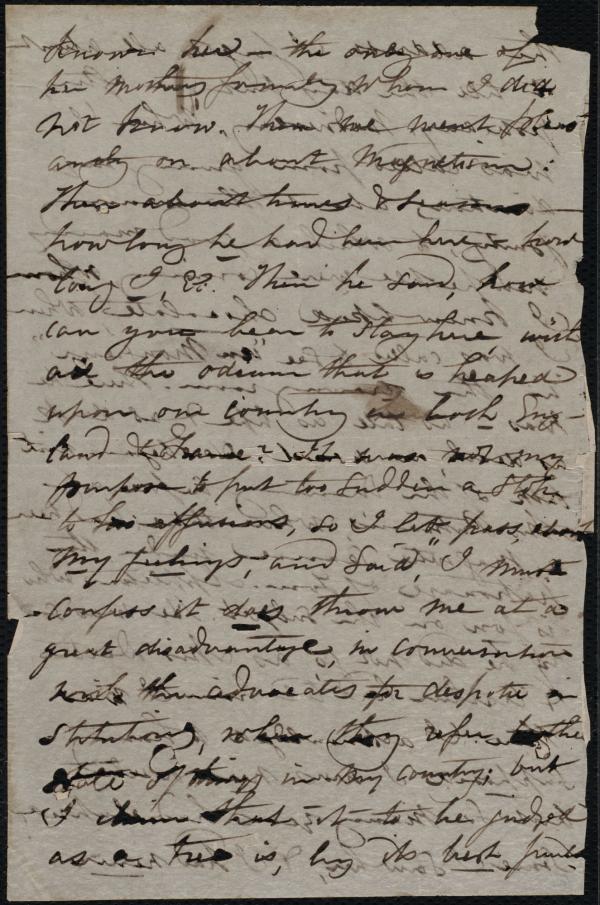 know her – the only one of
her mother's family whom I did
not know. Then we went pleas
antly on about Magnetism.
Then about times & seasons
how long he had been here & how
long I, &c. Then he said, how
can you bear to stay here with
all the odium that is heaped
upon our country in both Eng-
land & France? (It was not my
purpose to put too sudden a stop
to his effusions, so I let pass, about
my feelings, and said, "I must
confess it does throw me at a
great disadvantage, in conversation
with the advocates for despotic in
stitutions, when they refer to the
state of things in my country; but
I claim that it to be judged
as a tree is, by its best fruits